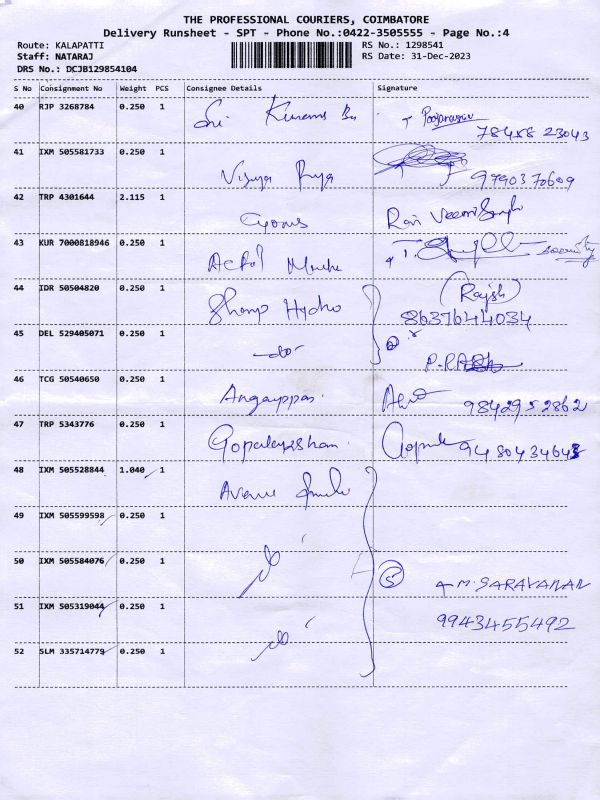 THE PROFESSIONAL COURIERS, COIMBATORE
Delivery Runsheet - SPT - Phone No.:0422-3505555 - Page No.:4
Route: KALAPATTI
Staff: NATARAJ
DRS No.: DCJB129854104
RS No.: 1298541
RS Date: 31-Dec-2023
S No Consignment No Weight PCS Consignee Details Signature
40 RJP 3268784 0.250 1 Sri
78458 23043
41 IXM 505581733 0.250 1
9790370609
42 TRP 4301644 2.115 1 Cyorus Ravi
43 KUR 7000818946 0.250 1 security
44 IDR 50504820 0.250 1 Hydro (Rajsh)
8637644034
45 DEL 529405071 0.250 1 -do- ②
46 TCG 50540650 0.250 1 Angayppan 9842952862
47 TRP 5343776 0.250 1
48 IXM 505528844 1.040 1
49 IXM 505599598 0.250 1
50 IXM 505584076 0.250 1 do ⑤ M. SARAVANAN
51 IXM 505319044 0.250 1 9943455492
52 SLM 335714779 0.250 1 do